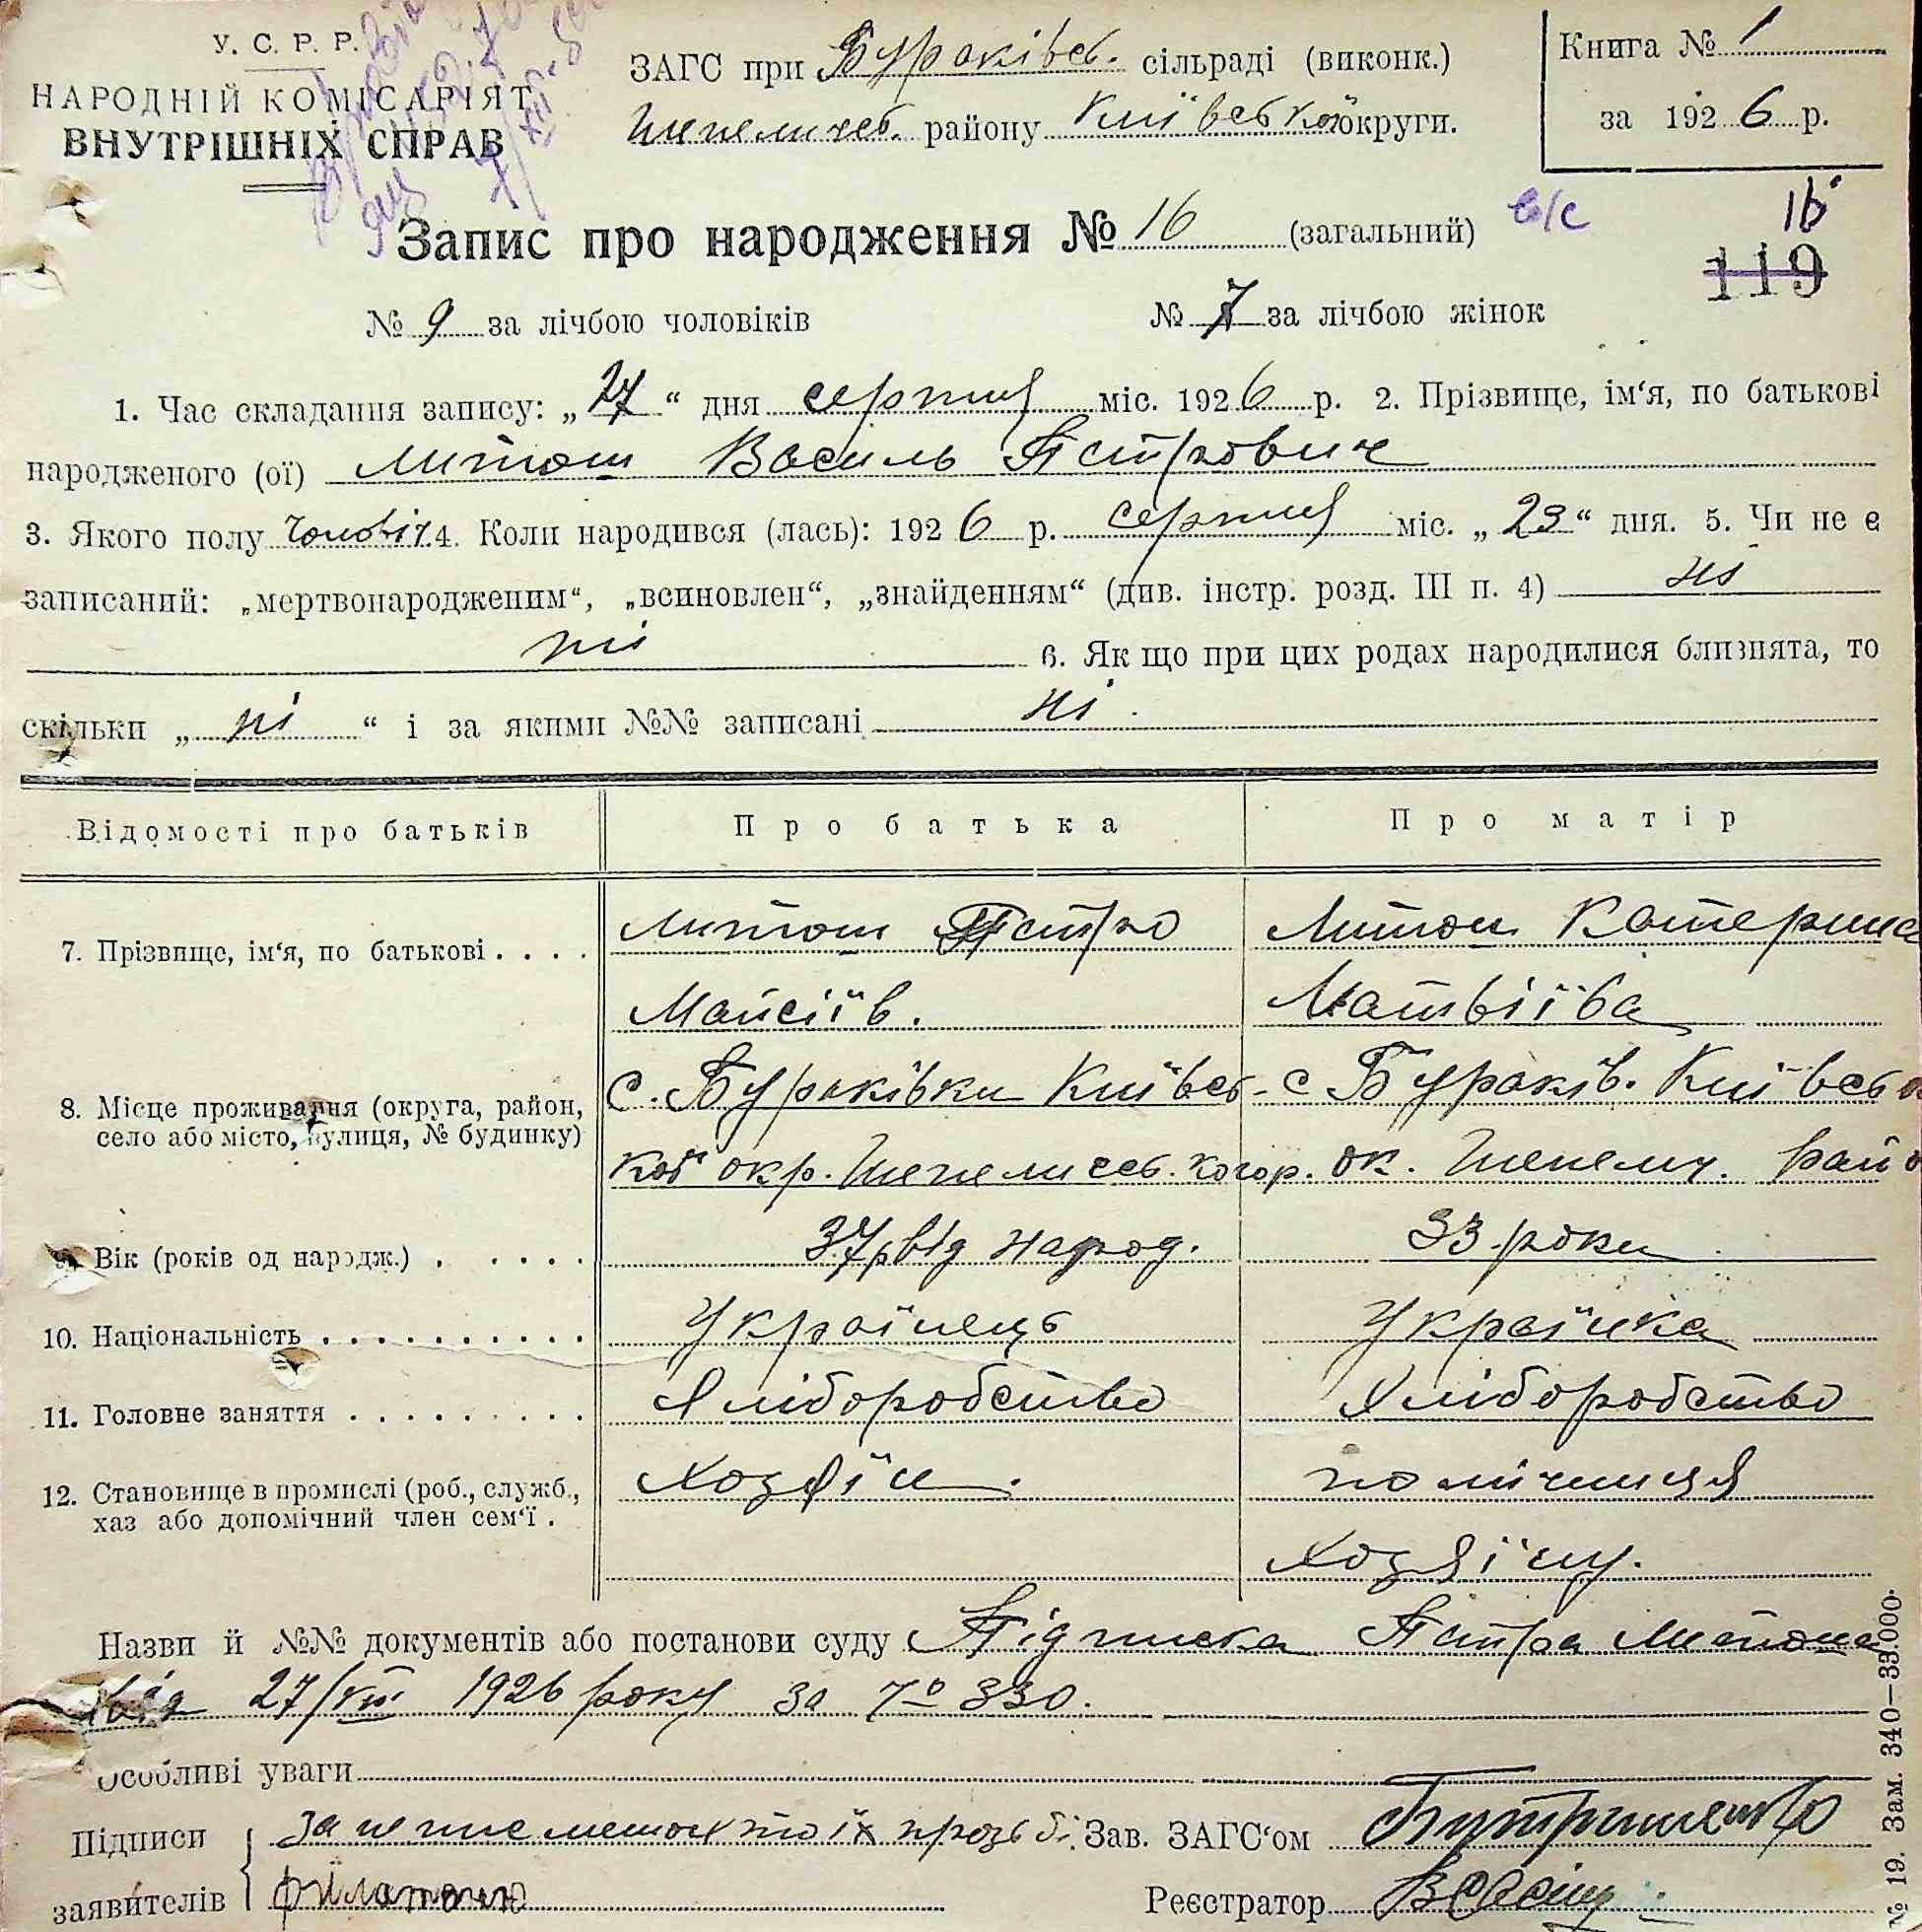 У. С. Р. Р.
НАРОДНІЙ КОМІСАРІЯТ
ВНУТРІШНІХ СПРАВ
ЗАГС при Бураківсь. сільраді (виконк.)
Шепеличсь. району Київської округи.
Книга № 1
за 1926 р.
Запис про народження № 16 (загальний)
в/с
16
119
№ 9 за лічбою чоловіків № 7 за лічбою жінок
1. Час складання запису: „27“ дня серпня міс. 1926 р. 2. Прізвище, ім‘я, по батькові
народженого (ої) Митош Василь Петрович
3. Якого полу Чоловіч. 4. Коли народився (лась): 1926 р. серпня міс. „23“ дня. 5. Чи не є
записаний: „мертвонародженим“, „всиновлен“, „знайденням“ (див. інстр. розд. III п. 4) ні
ні 6. Як що при цих родах народилися близнята, то
скільки „ні“ і за якими №№ записані ні.
Відомості про батьків Про батька Про матір
7. Прізвище, ім‘я, по батькові . . . . Митош Петро Митош Катерина
Мойсіїв. Матвіїва
8. Місце проживання (округа, район, с. Бураківки Київсь- с Бураків. Київсь
село або місто, вулиця, № будинку) кої окр. Шепеличсь. ок. Шепелич. рай
9. Вік (років од народж.) . . . . . 37 р від народ. 33 роки
10. Національність . . . . . . . . . . Українець Українка
11. Головне заняття . . . . . . . . . Хліборобство Хліборобство
12. Становище в промислі (роб., служб., Хозяїн. помічниця
хаз або допомічний член сем‘ї . Хозяїну.
Назви й №№ документів або постанови суду Підписка Петра Митоша
від 27/VIII 1926 року за № 330.
Особливі уваги
Підписи За неписьменних по їх прозьбі Зав. ЗАГС‘ом
заявителів Реєстратор
№ 19. Зам. 340—33.000.